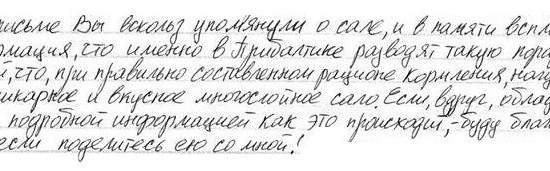 письме Вы вскользь упомянули о сале, и в памяти вспл
рмация, что именно в Прибалтике разводят такую поро
й, что, при правильно составленном рационе кормления, наг
шикарное и вкусное многослойное сало. Если, вдруг, облад
подробной информацией как это происходит, - буду благ
если поделитесь ею со мной!